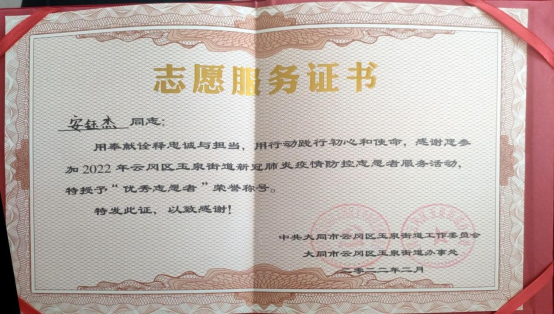 志愿服务证书
安钰杰 同志：
用奉献诠释忠诚与担当，用行动践行初心和使命，感谢您参
加2022年云冈区玉泉街道新冠肺炎疫情防控志愿者服务活动，
特授予“优秀志愿者”荣誉称号。
特发此证，以致感谢！
中共大同市云冈区玉泉街道工作委员会
大同市云冈区玉泉街道办事处
二零二二年二月